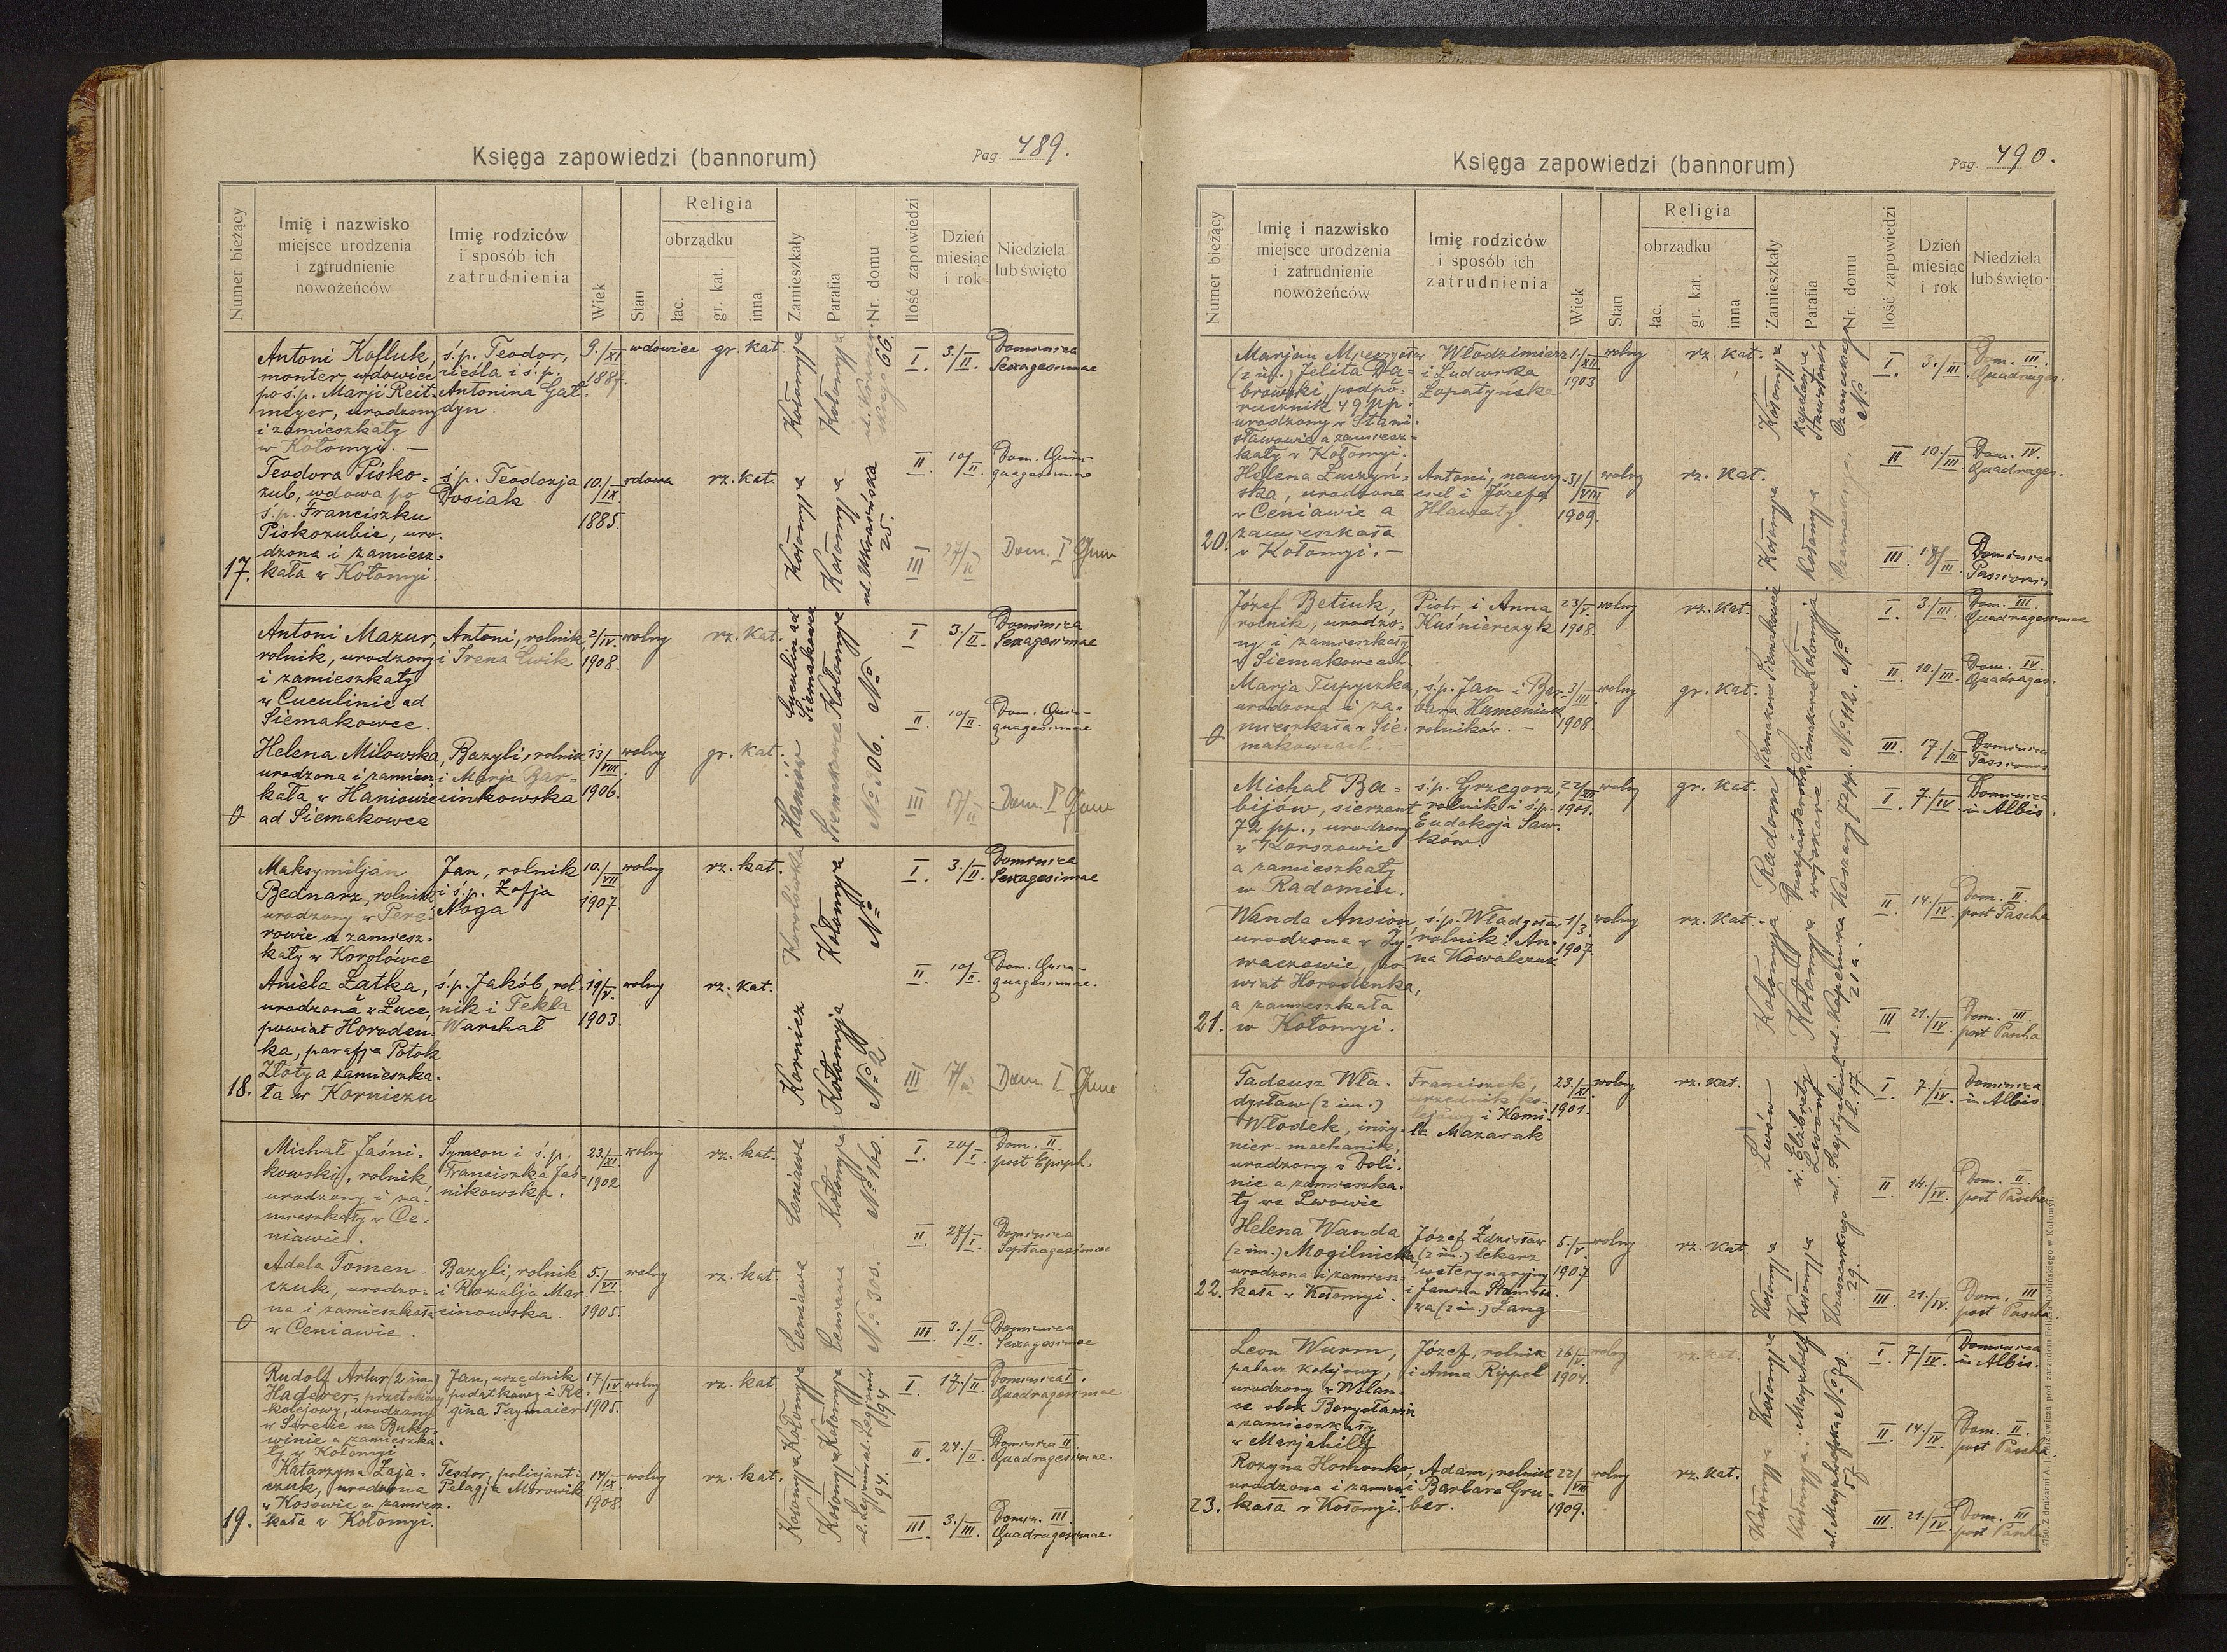 Księga zapowiedzi (bannorum)
Pag. 489.
Numer bieżący
Imię i nazwisko
miejsce urodzenia
i zatrudnienie
nowożeńców
Imię rodziców
i sposób ich
zatrudnienia
Wiek
Stan
Religia
obrządku
łac.
gr. kat.
inna
Zamieszkały
Parafia
Nr. domu
Ilość zapowiedzi
Dzień
miesiąc
i rok
Niedziela
lub święto
17.
Antoni Kofluk,
monter, wdowiec
po ś.p. Marji Reit-
meyer, urodzony
i zamieszkały
w Kołomyi. —
ś.p. Teodor,
cieśla i ś.p.
Antonina Gał-
dyn.
9./XI
1887.
wdowiec
gr. kat.
Kołomyja
Kołomyja
66.
I 3./II. Dominica
Sexagesimae
Teodora Pisko-
zub, wdowa po
ś.p. Franciszku
Piskozubie, uro-
dzona i zamiesz-
kała w Kołomyi.
ś.p. Teodozja
Dosiak
10./IX
1885.
wdowa
rz. kat.
Kołomyja
Kołomyja
ul. Ukraińska
25.
II 10/II. Dom. Quin-
quagesimae
III 17/II Dom. I Quar
Antoni Mazur,
rolnik, urodzony
i zamieszkały
w Cuculinie ad
Siemakowce.
Antoni, rolnik,
i Irena Ćwik
2/IV
1908.
wolny
rz. kat.
Cuculin ad
Siemakowce
Kołomyja
No
I 3./II. Dominica
Sexagesimae
Helena Milowska,
urodzona i zamiesz-
kała w Haniowie
ad Siemakowce
Bazyli, rolnik
i Marja Bar-
cinkowska
13/VIII.
1906.
wolny
gr. kat.
Haniów
Siemakowce
No 106.
II 10/II. Dom. Quin-
quagesimae
III 17/II Dom. I Quar
18.
Maksymiljan
Bednarz, rolnik
urodzony w Pere-
rowie a zamiesz-
kały w Korolówce
Jan, rolnik
i ś.p. Zofja
Noga
10./VII
1907.
wolny
rz. kat.
Korolówka
Kołomyja
No
I 3./II. Dominica
Sexagesimae
Aniela Łatka,
urodzona w Łuce,
powiat Horoden-
ka, parafja Potok
Złoty a zamieszka-
ła w Korniczu
ś.p. Jakób, rol-
nik i Tekla
Warchał
19/V.
1903.
wolny
rz. kat.
Kornicz
Kołomyja
No 2.
II 10/II. Dom. Quin-
quagesimae.
III 17/II Dom. I Quar
Michał Jaśni-
kowski, rolnik,
urodzony i za-
mieszkały w Ce-
niawie.
Symeon i ś.p.
Franciszka Jaś-
nikowska.
23./XI.
1902
wolny
rz. kat.
Ceniawa
Kołomyja
No 160.
I 20/I. Dom. II
post Epiph.
Adela Tomen-
czuk, urodzo-
na i zamieszkała
w Ceniawie.
Bazyli, rolnik
i Rozalja Mar-
cinowska.
5./VI.
1905.
wolny
rz. kat.
Ceniawa
No 300.
II 27/I. Dominica
Septuagesimae
III. 3./II. Dominica
Sexagesimae
19.
Rudolf Artur (2 im.)
Haderer, przetokowy
kolejowy, urodzony
w Serecie na Buko-
winie a zamieszka-
ły w Kołomyi
Jan, urzędnik
podatkowy i Re-
gina Taymaier
17/IV
1905.
wolny
rz. kat
Kołomyja
Kołomyja
ul. Legionów
94
I 17./II. Dominica I.
Quadragesimae
Katarzyna Zaja-
czuk, urodzona
w Kosowie a zamiesz-
kała w Kołomyi.
Teodor, policjant i
Pelagja Morowik
14/IX.
1908.
wolny
rz. kat.
Kołomyja
Kołomyja
ul. Legionów
94.
II 24./II. Dominica II.
Quadragesimae.
III. 3./III. Domin. III.
Quadragesimae.
Księga zapowiedzi (bannorum)
Pag. 490.
Numer bieżący
Imię i nazwisko
miejsce urodzenia
i zatrudnienie
nowożeńców
Imię rodziców
i sposób ich
zatrudnienia
Wiek
Stan
Religia
obrządku
łac.
gr. kat.
inna
Zamieszkały
Parafia
Nr. domu
Ilość zapowiedzi
Dzień
miesiąc
i rok
Niedziela
lub święto
20.
Marjan Mieczysław
(2 im.) Jelita Dą-
browski, podpo-
rucznik 49 pp.
urodzony w Stani-
sławowie a zamiesz-
kały w Kołomyi.
Włodzimierz
i Ludwika
Łopatyńska
1./XII
1903
wolny
rz. kat.
Kołomyja
Stanisławów
No
I. 3./III Dom. III.
Quadrages.
Helena Łuczyń-
ska, urodzona
w Ceniawie a
zamieszkała
w Kołomyi. —
Antoni, nauczy-
ciel i Józefa
Hławaty
31/VIII
1909.
wolny
rz. kat.
Kołomyja
Kołomyja
II 10./III Dom. IV.
Quadrages.
III. Dominica
Passionis
Józef Betiuk,
rolnik, urodzo-
ny i zamieszkały
w Siemakowcach.
Piotr i Anna
Kuśnierczyk
23/V.
1908.
wolny
rz. kat.
Siemakowce
Kołomyja
No
I. 3./III. Dom. III.
Quadragesimae
Marja Tupyczka,
urodzona i za-
mieszkała w Sie-
makowcach. —
ś.p. Jan i Bar-
bara Humeniuk
rolników. —
3/III.
1908
wolny
gr. kat.
Siemakowce
Siemakowce
No 112.
II. 10./III. Dom. IV.
Quadrages.
III. 17./III Dominica
Passionis
21.
Michał Ba-
bijów, sierżant
72 pp., urodzony
w Korszowie
a zamieszkały
w Radomiu.
ś.p. Grzegorz
rolnik i ś.p.
Eudokja Saw-
ków.
22/XII
1901.
wolny
gr. kat.
Radom
Duszpasterstwo
wojskowe
Koszary 72 pp.
I. 7./IV. Dominica
in Albis.
Wanda Ansion,
urodzona w Ży-
waczowie, po-
wiat Horodenka,
a zamieszkała
w Kołomyi.
ś.p. Władysław
rolnik i An-
na Kowalczuk
1/3.
1907.
wolny
rz. kat.
Kołomyja
Kołomyja
ul. Kopernika
21a.
II 14./IV. Dom. II.
post Pascha
III 21./IV. Dom. III.
post Pascha
22.
Tadeusz Wła-
dysław (2 im.)
Włodek, inży-
nier-mechanik,
urodzony w Doli-
nie a zamieszka-
ły we Lwowie
Franciszek,
urzędnik ko-
lejowy i Kami-
la Mazarak
23./XI.
1901.
wolny
rz. kat.
Lwów
św. Elżbiety
Lwów
l. 17.
I. 7./IV. Dominica
in Albis.
Helena Wanda
(2 im.) Mogilnicka,
urodzona i zamiesz-
kała w Kołomyi.
Józef Zdzisław
(2 im.) lekarz
weterynaryjny
i Janina Stanisła-
wa (2 im.) Lang
5./V.
1907
wolny
rz. kat.
Kołomyja
Kołomyja
ul. Kraszewskiego
29.
II 14./IV. Dom. II.
post Pascha
III. 21./IV. Dom. III
post Pascha
23.
Leon Wurm,
palacz kolejowy,
urodzony w Wolan-
ce obok Borysławia
a zamieszkały
w Marjahilf
Józef, rolnik
i Anna Rippel
26/V.
1904.
wolny
rz. kat.
Kołomyja
Marjahilf
No 70.
I. 7./IV. Dominica
in Albis.
Rozyna Homonko,
urodzona i zamiesz-
kała w Kołomyi.
Adam, rolnik
i Barbara Gru-
ber.
22/VII
1909.
wolny
rz. kat.
Kołomyja
Kołomyja
57
II 14./IV. Dom. II.
post Pascha
III. 21./IV. Dom. III
post Pascha